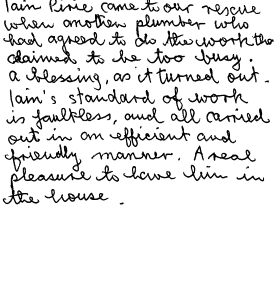 Iain Pirie came to our rescue
when another plumber who
had agreed to do the work then
claimed to be too busy.
a blessing, as it turned out.
Iain's standard of work
is faultless, and all carried
out in an efficient and
friendly manner. A real
pleasure to have him in
the house.